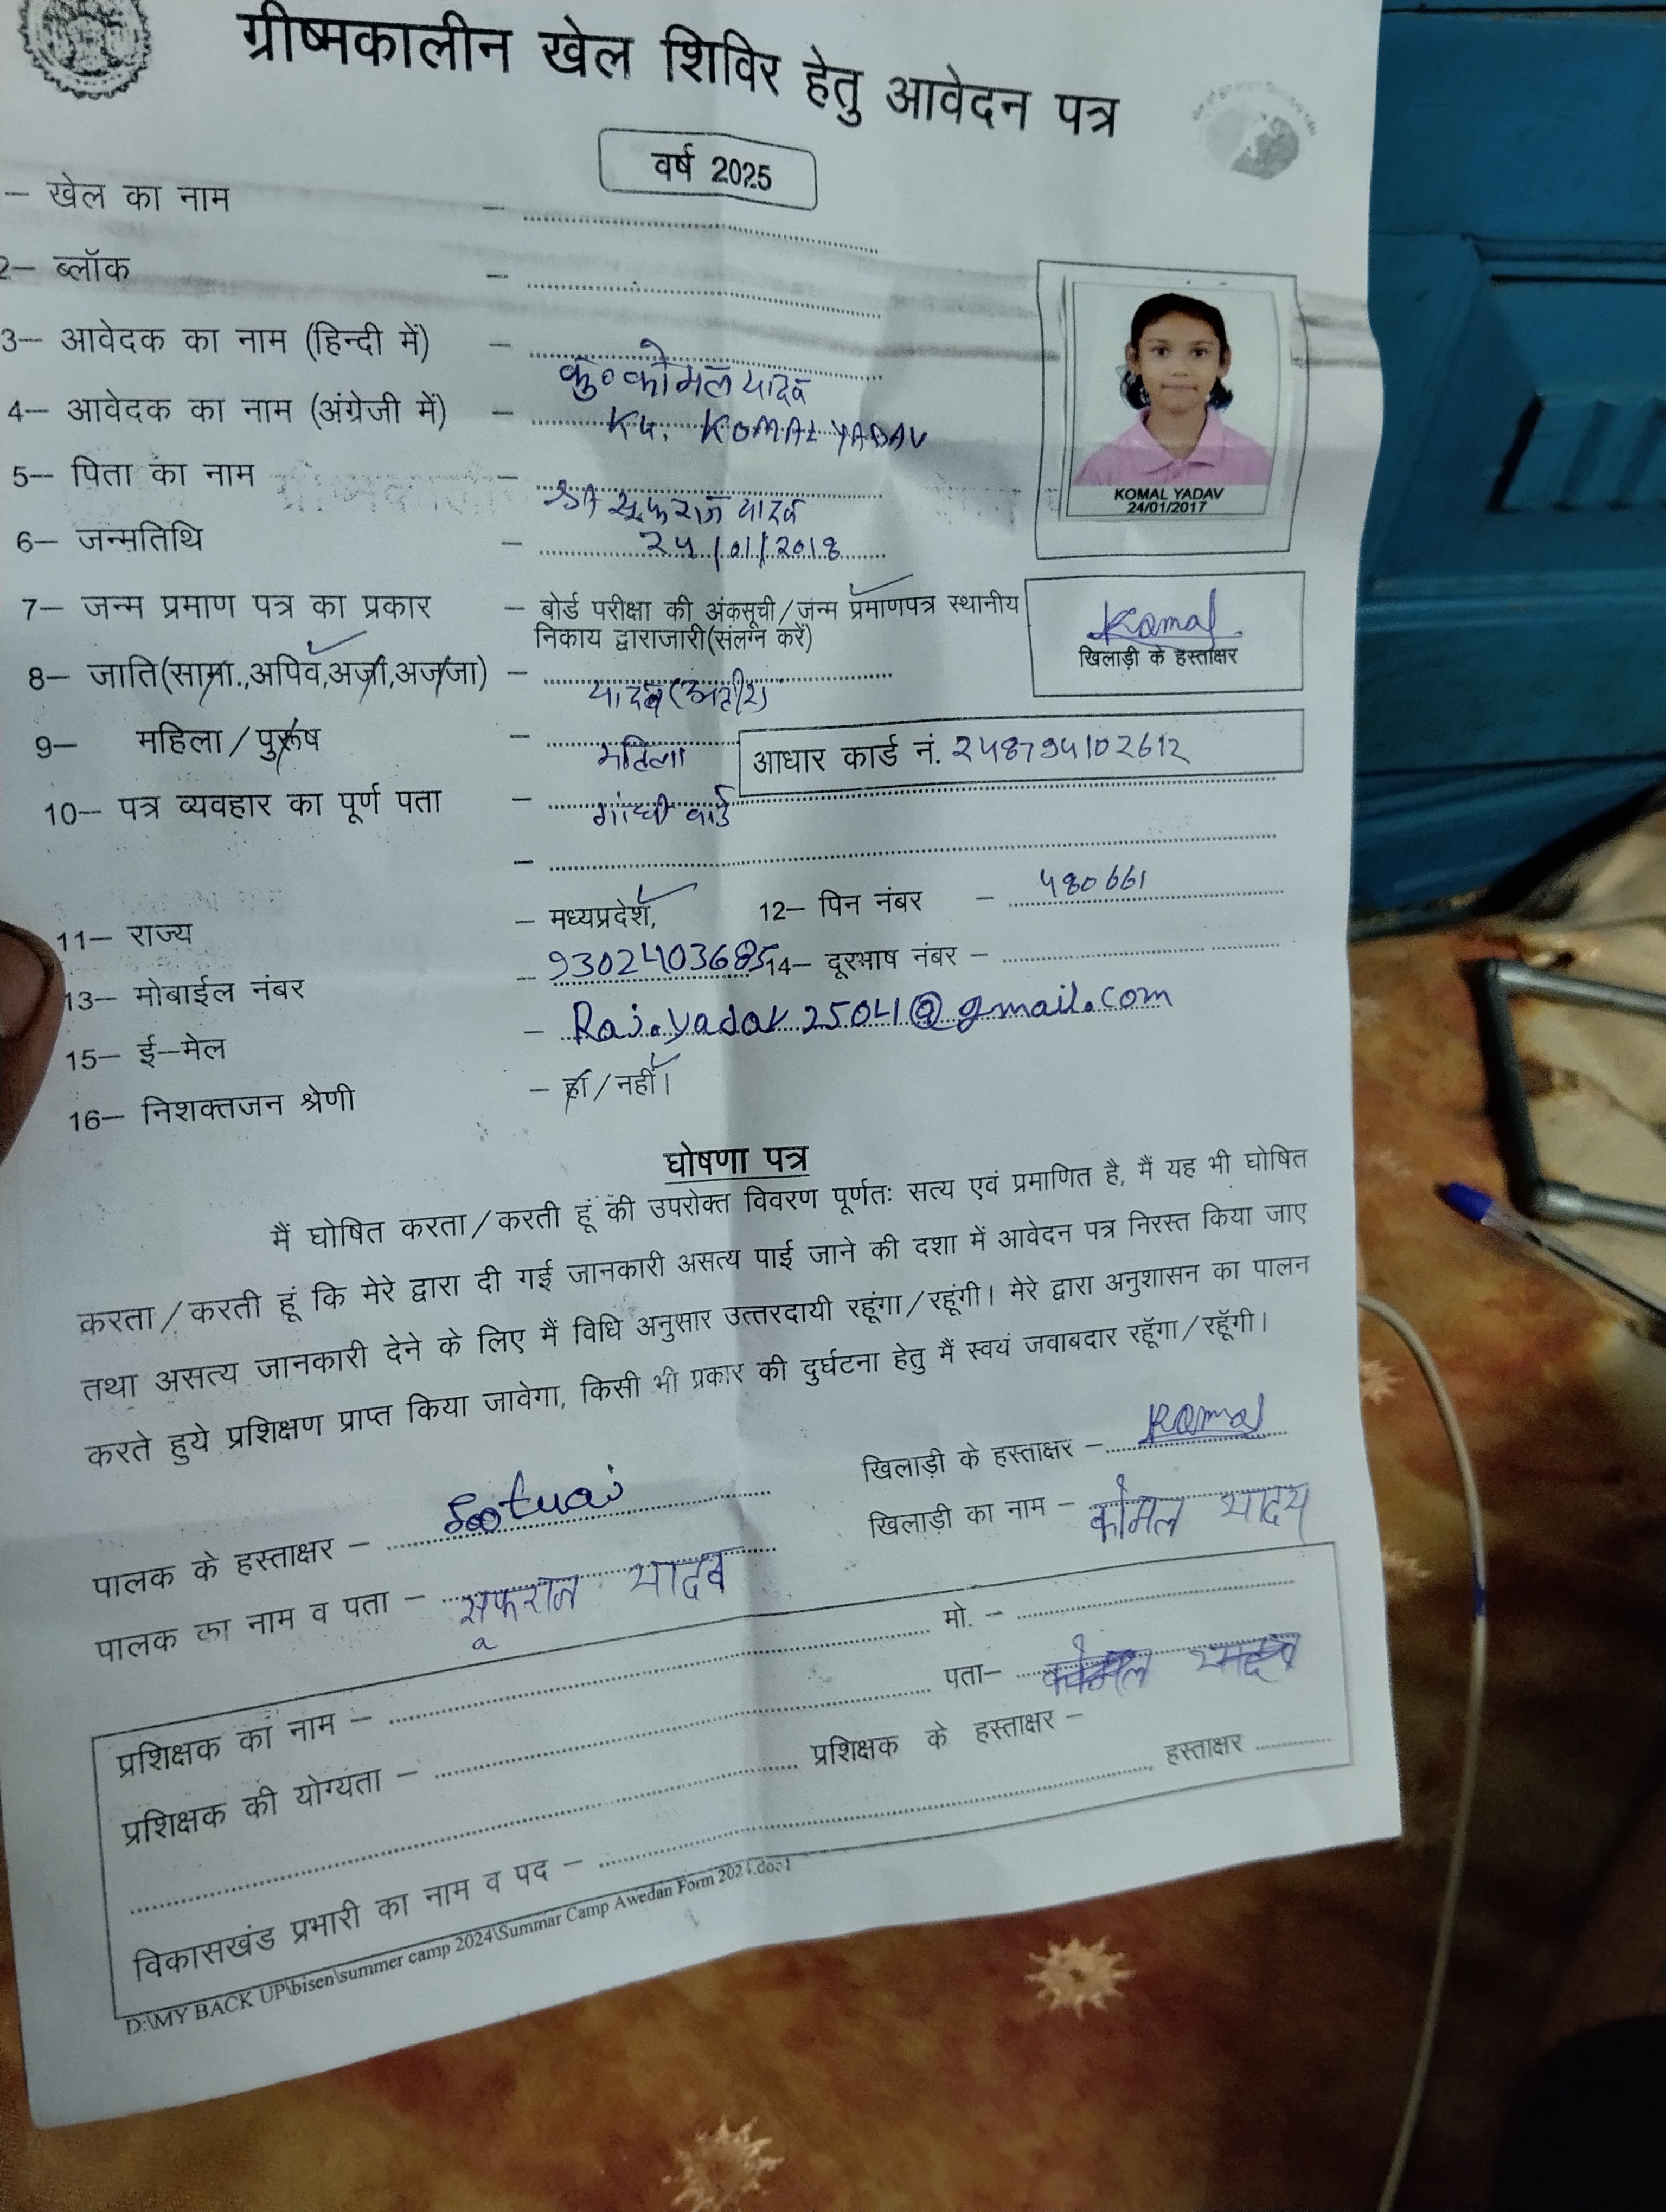 ग्रीष्मकालीन खेल शिविर हेतु आवेदन पत्र
वर्ष 2025
– खेल का नाम –
2– ब्लॉक –
3– आवेदक का नाम (हिन्दी में) – कु० कोमल यादव
4– आवेदक का नाम (अंग्रेजी में) – KU. KOMAL YADAV
KOMAL YADAV
24/01/2017
5– पिता का नाम – श्री सूफराज यादव
6– जन्मतिथि – 24/01/2018
7– जन्म प्रमाण पत्र का प्रकार – बोर्ड परीक्षा की अंकसूची/जन्म प्रमाणपत्र स्थानीय
निकाय द्वाराजारी(संलग्न करें)
Komal
खिलाड़ी के हस्ताक्षर
8– जाति(सामा.,अपिव,अजा,अजजा) – यादव (अहीर)
9– महिला/पुरूष – महिला
आधार कार्ड नं. 248794102612
10– पत्र व्यवहार का पूर्ण पता – गांधी वार्ड
–
11– राज्य – मध्यप्रदेश, 12– पिन नंबर – 480661
13– मोबाईल नंबर – 9302403685 14– दूरभाष नंबर –
15– ई–मेल – Raj.yadav25041@gmail.com
16– निशक्तजन श्रेणी – हां/नहीं।
घोषणा पत्र
मैं घोषित करता/करती हूं की उपरोक्त विवरण पूर्णतः सत्य एवं प्रमाणित है, मैं यह भी घोषित
करता/करती हूं कि मेरे द्वारा दी गई जानकारी असत्य पाई जाने की दशा में आवेदन पत्र निरस्त किया जाए
तथा असत्य जानकारी देने के लिए मैं विधि अनुसार उत्तरदायी रहूंगा/रहूंगी। मेरे द्वारा अनुशासन का पालन
करते हुये प्रशिक्षण प्राप्त किया जावेगा, किसी भी प्रकार की दुर्घटना हेतु मैं स्वयं जवाबदार रहूॅगा/रहूॅगी।
खिलाड़ी के हस्ताक्षर – Komal
पालक के हस्ताक्षर –
खिलाड़ी का नाम – कोमल यादव
पालक का नाम व पता – सूफराज यादव
प्रशिक्षक का नाम – मो. –
प्रशिक्षक की योग्यता – पता–
प्रशिक्षक के हस्ताक्षर –
विकासखंड प्रभारी का नाम व पद – हस्ताक्षर
D:\MY BACK UP\bisen\summer camp 2024\Summar Camp Awedan Form 2021.doc1